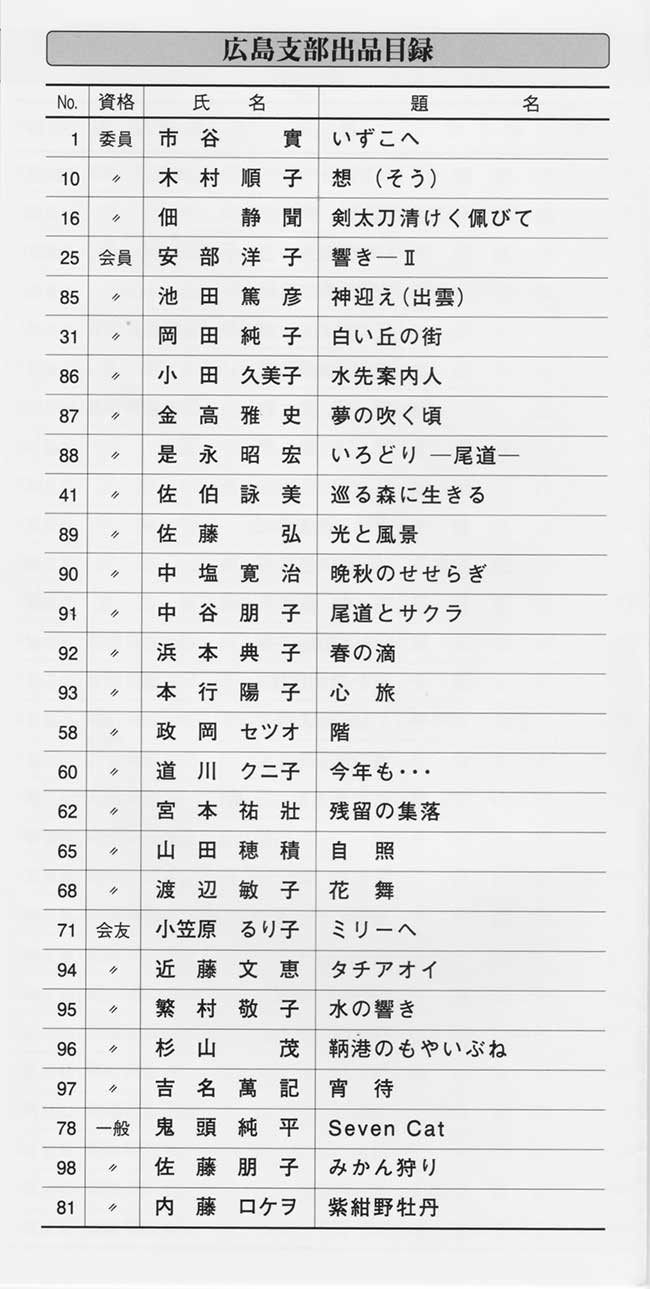 広島支部出品目録
No. 資格 氏名 題名
1 委員 市谷 實 いずこへ
10 〃 木村順子 想 (そう)
16 〃 佃 静聞 剣太刀清けく佩びて
25 会員 安部洋子 響き―Ⅱ
85 〃 池田篤彦 神迎え(出雲)
31 〃 岡田純子 白い丘の街
86 〃 小田久美子 水先案内人
87 〃 金高雅史 夢の吹く頃
88 〃 是永昭宏 いろどり ―尾道―
41 〃 佐伯詠美 巡る森に生きる
89 〃 佐藤 弘 光と風景
90 〃 中塩寛治 晩秋のせせらぎ
91 〃 中谷朋子 尾道とサクラ
92 〃 浜本典子 春の滴
93 〃 本行陽子 心 旅
58 〃 政岡セツオ 階
60 〃 道川クニ子 今年も･･･
62 〃 宮本祐壯 残留の集落
65 〃 山田穂積 自 照
68 〃 渡辺敏子 花 舞
71 会友 小笠原るり子 ミリーへ
94 〃 近藤文恵 タチアオイ
95 〃 繁村敬子 水の響き
96 〃 杉山 茂 鞆港のもやいぶね
97 〃 吉名萬記 宵 待
78 一般 鬼頭純平 Seven Cat
98 〃 佐藤朋子 みかん狩り
81 〃 内藤ロケヲ 紫紺野牡丹